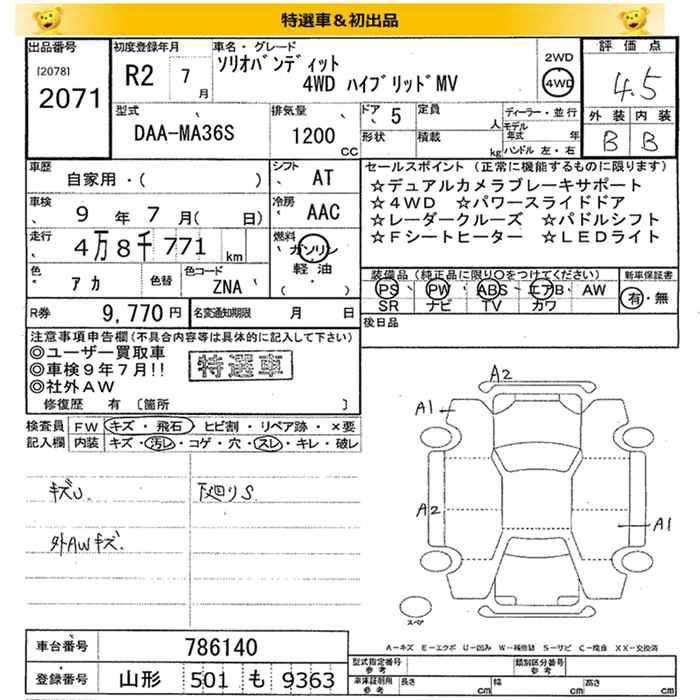 特選車＆初出品
出品番号 [2078] 2071
初度登録年月 R2 7月
車名・グレード ソリオバンディット 4WD ハイブリッドMV
2WD 4WD
評価点 4.5
外装 内装
B B
型式 DAA-MA36S
排気量 1200 CC
ドア 5
形状
定員 人
積載 kg
ディーラー・並行
モデル年式 年
ハンドル 左・右
車歴 自家用・( )
シフト AT
車検 9年7月(日)
冷房 AAC
走行 4万8千771km
燃料 ガソリン 軽油
色 アカ 色替
色コード ZNA
R券 9,770円
名変通知期限 月 日
セールスポイント (正常に機能するものに限ります)
☆デュアルカメラブレーキサポート
☆4WD ☆パワースライドドア
☆レーダークルーズ ☆パドルシフト
☆Fシートヒーター ☆LEDライト
装備品 (純正品に限り○をつけてください)
PS PW ABS エアB AW
SR ナビ TV カワ
新車保証書
有・無
後日品
注意事項申告欄(不具合内容等は具体的に記入して下さい)
◎ユーザー買取車
◎車検9年7月!!
◎社外AW
特選車
修復歴 有 〔箇所 〕
検査員記入欄
FW キズ・飛石・ヒビ割・リペア跡・×要
内装 キズ・汚レ・コゲ・穴・スレ・キレ・破レ
キズU
下廻りS
外AWキズ
A2
A1
A2
A1
スペア
A-キズ E-エクボ U-凹み W-補修跡 S-サビ C-腐食 XX-交換済
車台番号 786140
登録番号 山形 501 も 9363
型式指定番号 参考
類別区分番号 参考
車庫証明用 参考 長さ cm 幅 cm 高さ cm